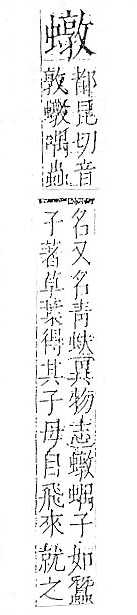 𧑒
都昆切音
敦𧑒𧍪蟲
名又名青蚨異物志𧑒𧍪子如蠶
子著草葉得其子母自飛來就之